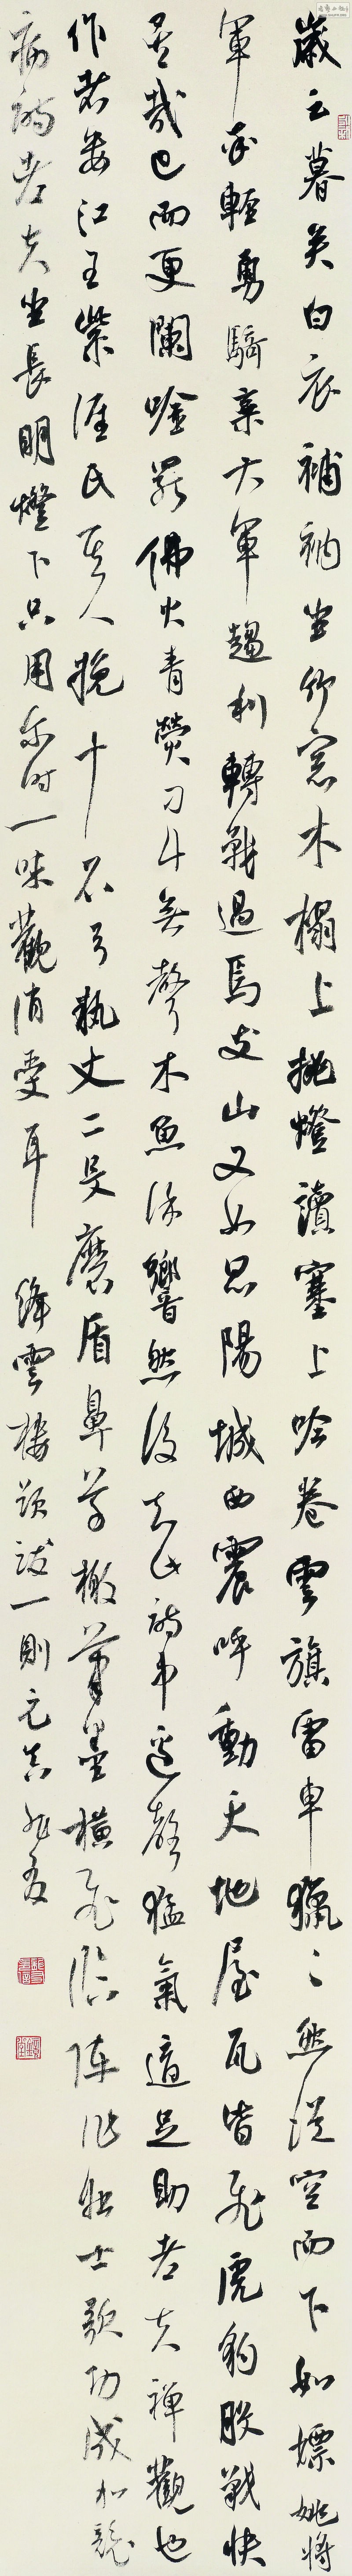 歲云暮矣白衣補衲坐竹窓木榻上挑燈讀塞上吟卷雲旗雷車獵〻然從空而下如嫖姚將
軍輕勇騎棄大軍趨利轉戰過焉支山又如昆陽城西震呼動天地屋瓦皆飛虎豹股戰快
哉已而更闌唫罷佛火青熒刁斗無聲木魚徐響然後知此詩中邊聲猛氣適足助老夫禪觀也
作者婁江王紫涯氏其人挽十石弓執丈二殳磨盾鼻草檄筆墨橫飛臨陣作壯士歌功成如龍
病衲老夫坐長明燈下只用爾時一味觀消受耳 絳雲樓題跋一則